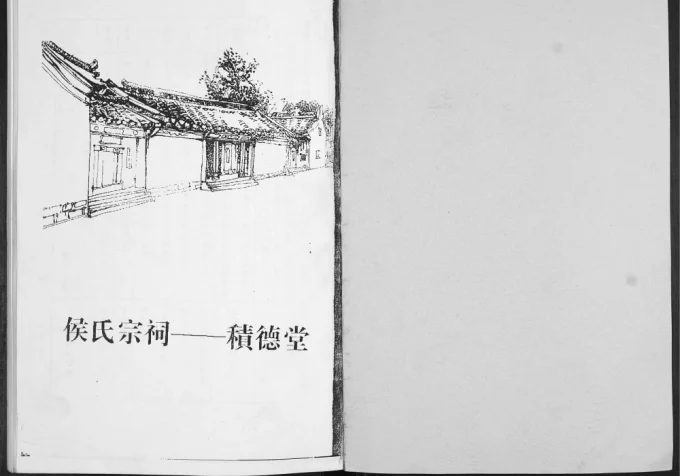 侯氏宗祠——積德堂